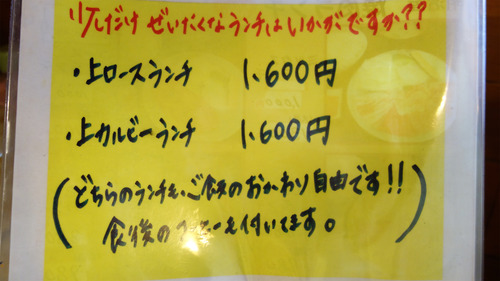 少しだけ ぜいたくなランチはいかがですか??
・上ロースランチ 1,600円
・上カルビーランチ 1,600円
(どちらのランチも、ご飯のおかわり自由です!!
食後のコーヒーも付いてます。)